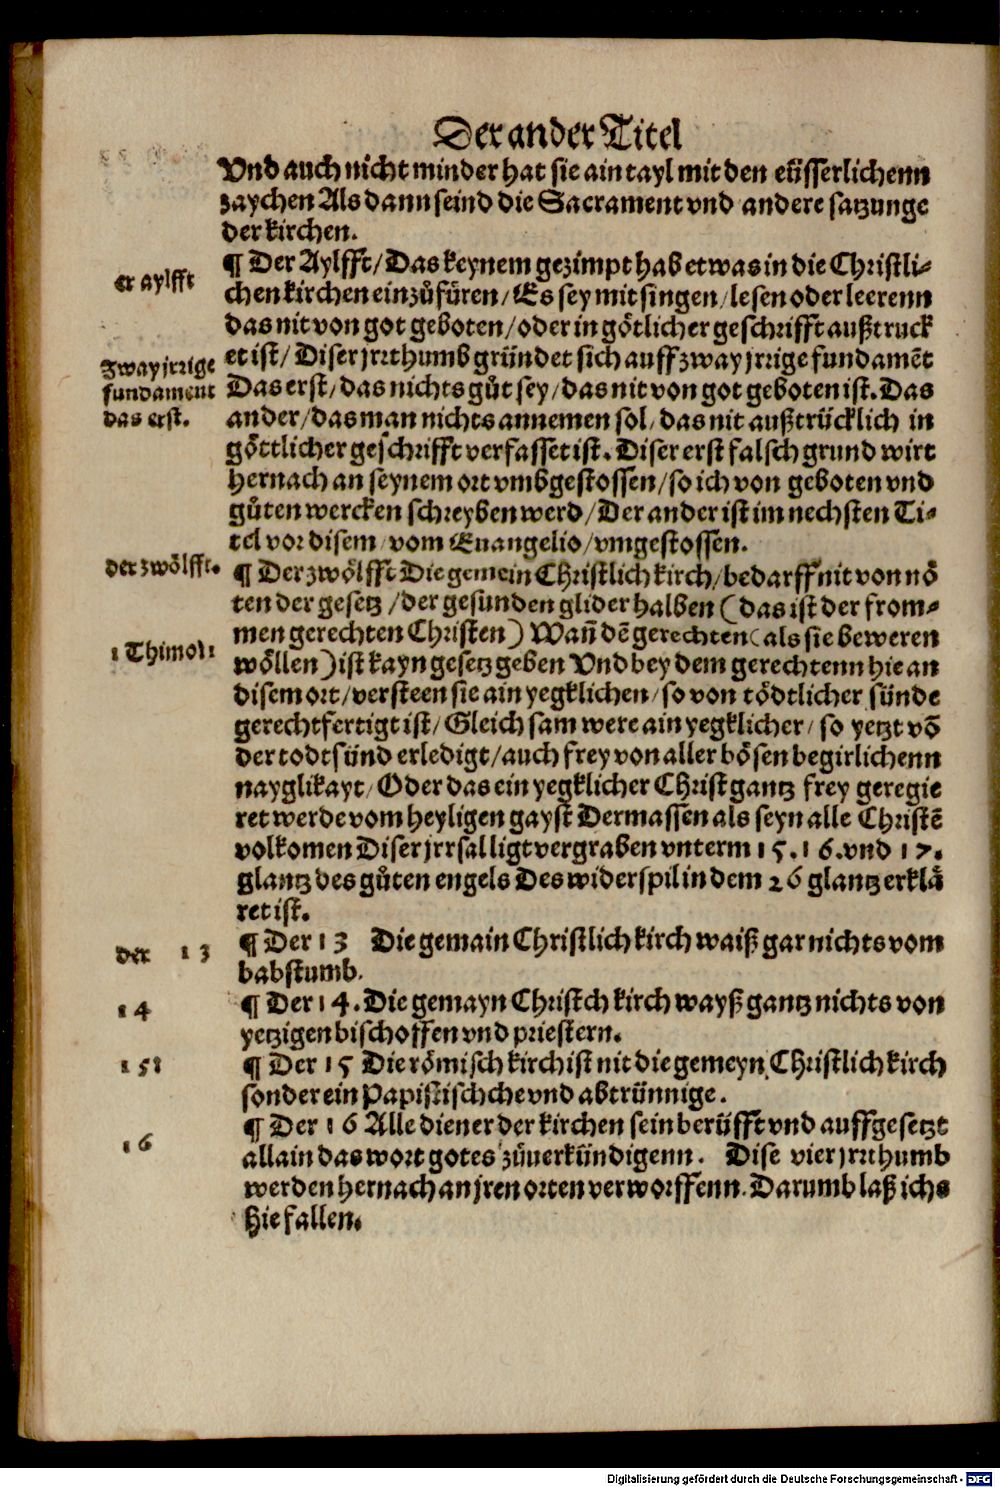 Der ander Titel
Vnd auch nicht minder hat sie ain tayl mit den eüsserlichenn
zaychen Als dann seind die Sacrament vnd andere satzunge
der kirchen.
¶ Der Aylfft/ Das keynem gezimpt hab etwas in die Christli-
er aylfft
chen kirchen einzůfüren/ Es sey mit singen/ lesen oder leerenn
das nit von got geboten/ oder in götlicher geschrifft außtruck
et ist/ Diser jrrthumb gründet sich auff zway jrrige fundamẽt
Zway jrrige
Das erst/ das nichts gůt sey/ das nit von got geboten ist. Das
fundament
ander/ das man nichts annemen sol/ das nit außtrücklich in
das erst.
göttlicher geschrifft verfasset ist. Diser erst falsch grund wirt
hernach an seynem ort vmbgestossen/ so ich von geboten vnd
gůten wercken schreyben werd/ Der ander ist im nechsten Ti-
tel vor disem/ vom Euangelio/ vmgestossen.
der zwölfft.
¶ Der zwölfft Die gemein Christlich kirch/ bedarff nit von nö
ten der gesetz/ der gesunden glider halben (das ist der from-
men gerechten Christen) Wañ dẽ gerechten (als sie beweren
1 Thimo. 1
wöllen) ist kayn gesetz geben Vnd bey dem gerechtenn hie an
disem ort/ versteen sie ain yegklichen/ so von tödtlicher sünde
gerechtfertigt ist/ Gleich sam were ain yegklicher/ so yetzt võ
der todtsünd erledigt/ auch frey von aller bösen begirlichenn
nayglikayt/ Oder das ein yegklicher Christ gantz frey geregie
ret werde vom heyligen gayst Dermassen als seyn alle Christẽ
volkomen Diser jrrsal ligt vergraben vnterm 15. 16. vnd 17.
glantz des gůten engels Des widerspil in dem 26 glantz erklä
ret ist.
¶ Der 13 Die gemain Christlich kirch waiß gar nichts vom
der 13
babstumb.
¶ Der 14. Die gemayn Christch kirch wayß gantz nichts von
14
yetzigen bischoffen vnd priestern.
¶ Der 15 Die römisch kirch ist nit die gemeyn Christlich kirch
15
sonder ein Papistischche vnd abtrünnige.
¶ Der 16 Alle diener der kirchen sein berüfft vnd auffgesetzt
16
allain das wort gotes zůuerkündigenn. Dise vier jrrthumb
werden hernach an jren orten verworffenn. Darumb laß ichs
hie fallen.
Digitalisierung gefördert durch die Deutsche Forschungsgemeinschaft - DFG